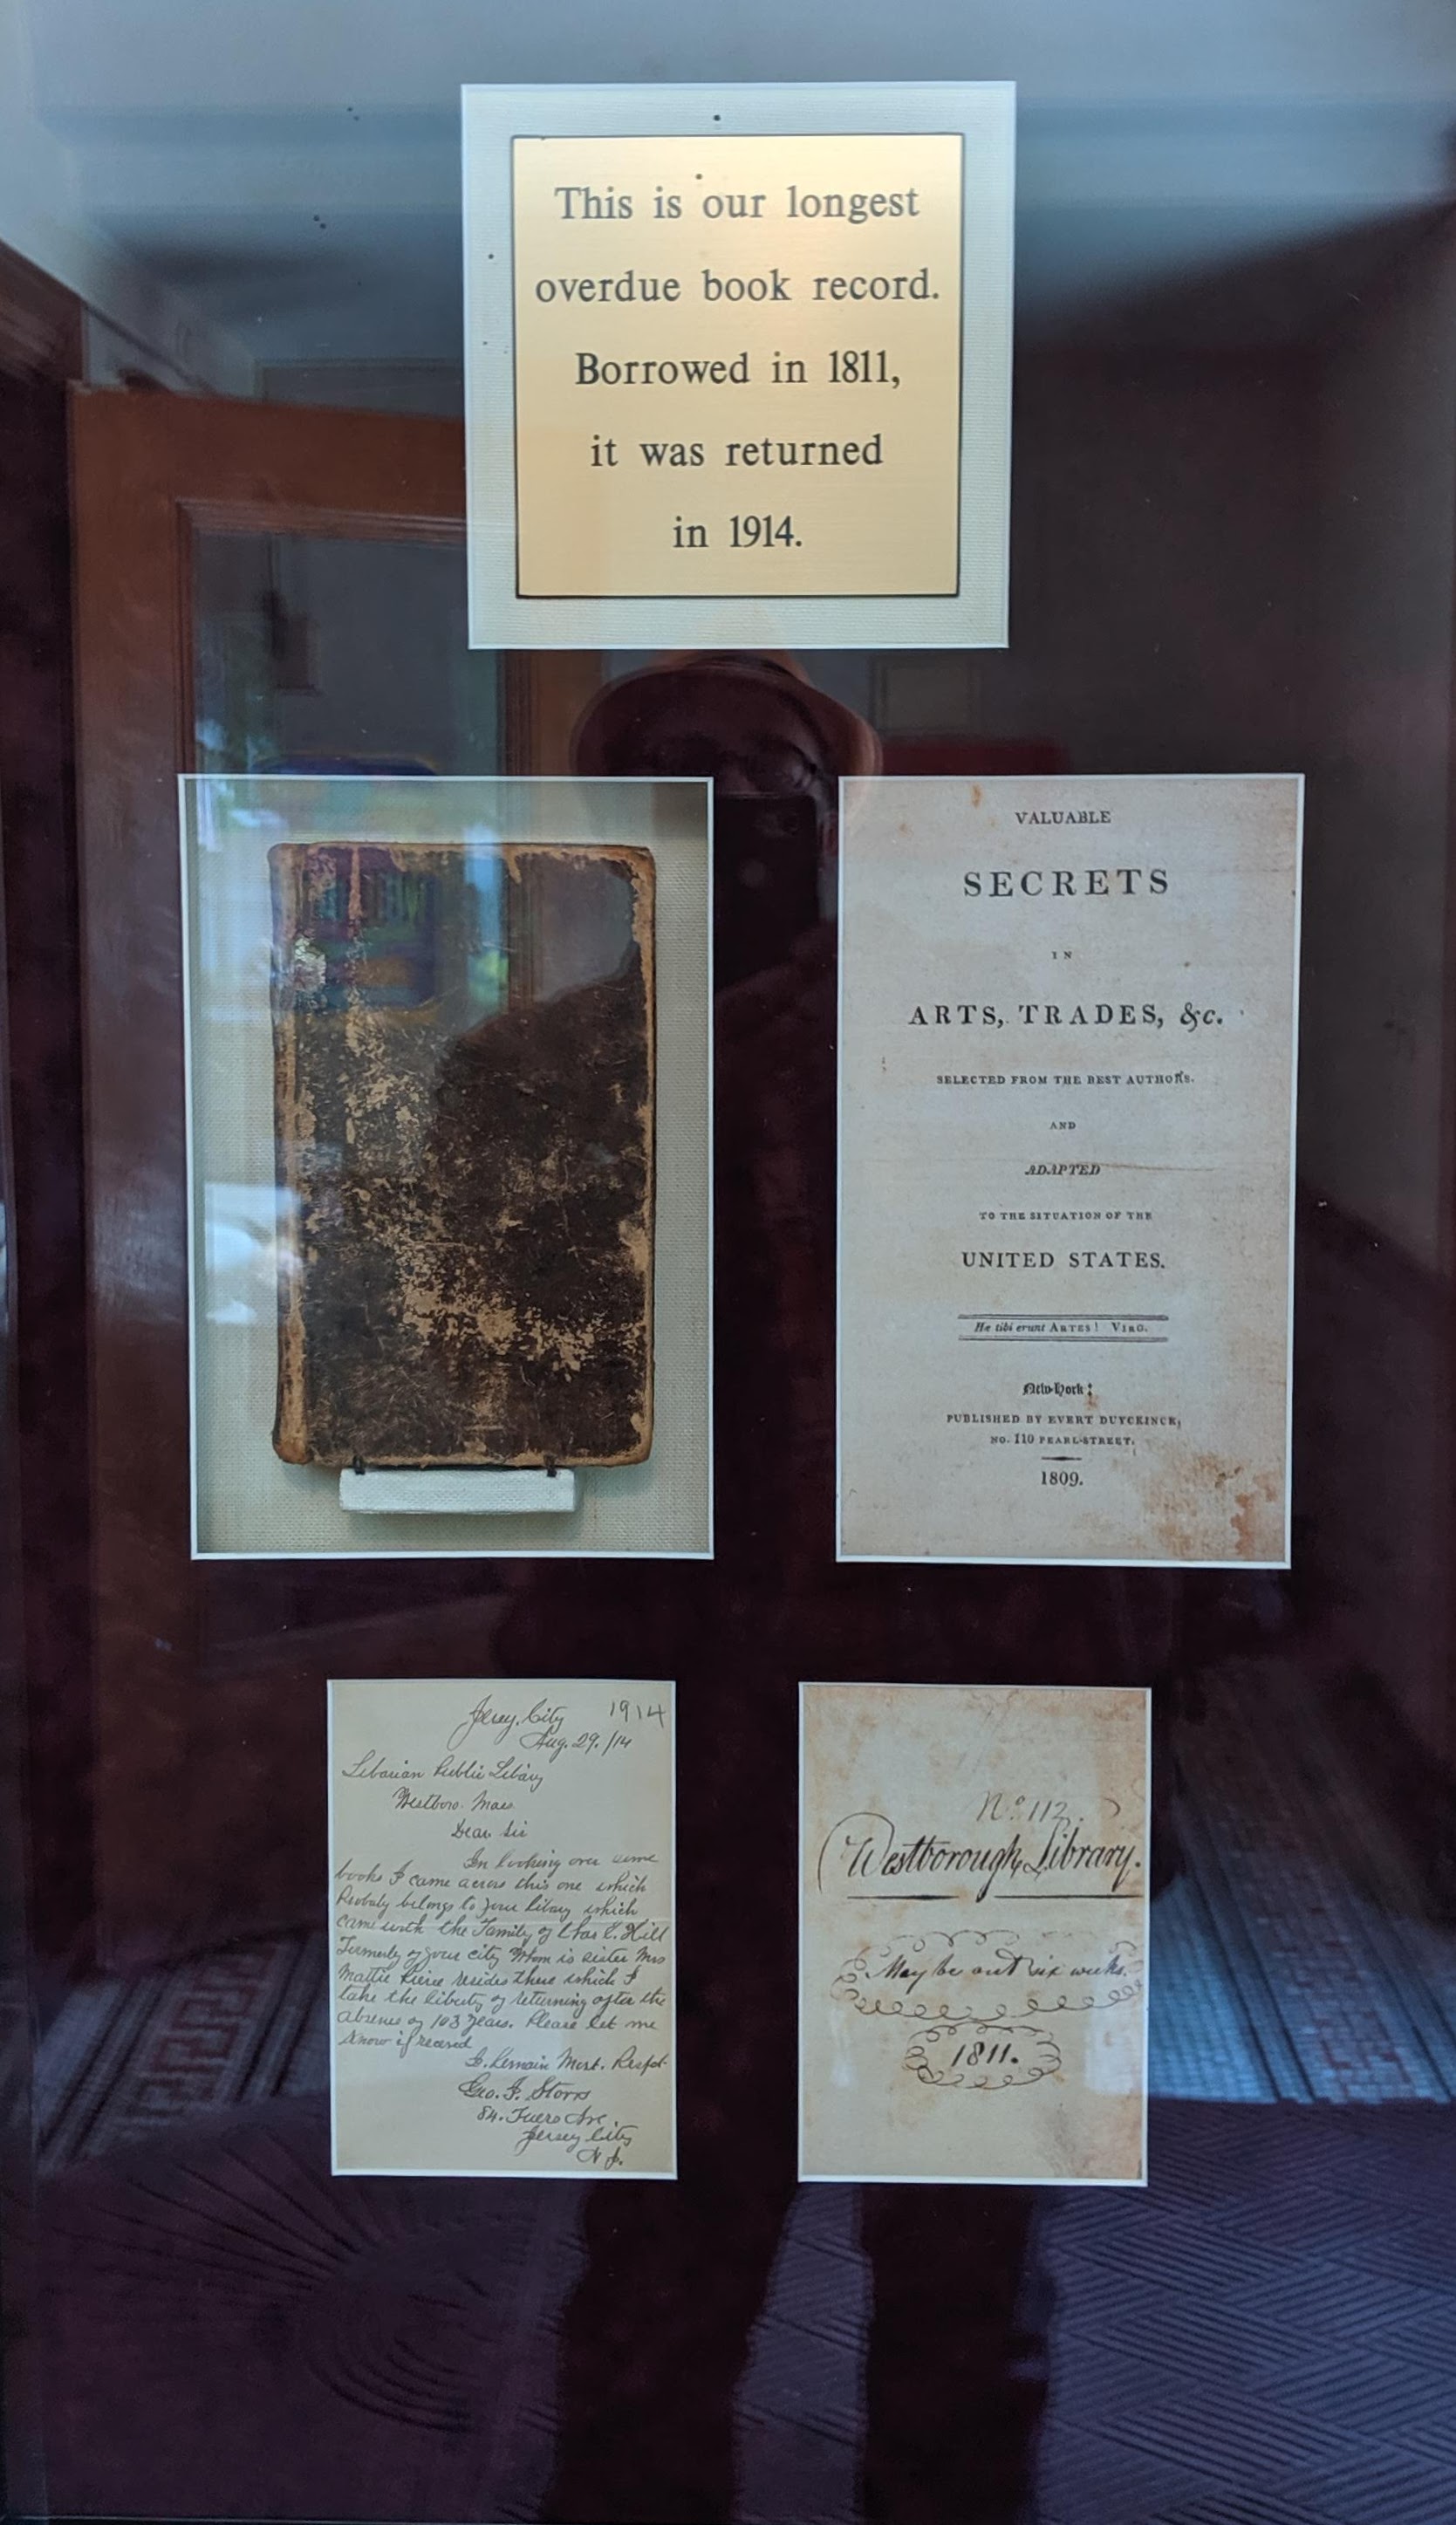 This is our longest
overdue book record.
Borrowed in 1811,
it was returned
in 1914.
VALUABLE
SECRETS
IN
ARTS, TRADES, &c.
SELECTED FROM THE BEST AUTHORS.
AND
ADAPTED
TO THE SITUATION OF THE
UNITED STATES.
Hæ tibi erunt ARTES! VIRG.
New-York:
PUBLISHED BY EVERT DUYCKINCK,
NO. 110 PEARL-STREET.
1809.
Jersey City 1914
Aug. 29./14
Libarian Public Libary
Westboro. Mass
Dear Sir
In looking over some
books I came across this one which
Probaly belongs to your libary which
came with the Family of Chas E. Hill
Formerly of your city Whom is sister Mrs
Mattie Pierce resides there which I
take the liberty of returning after the
absence of 103 years. Please let me
know if received
I. Remain Most. Respet-
Geo. F. Storrs
84. Ave.
Jersey City
N J.
No. 112.
Westborough Library.
May be out six weeks.
1811.